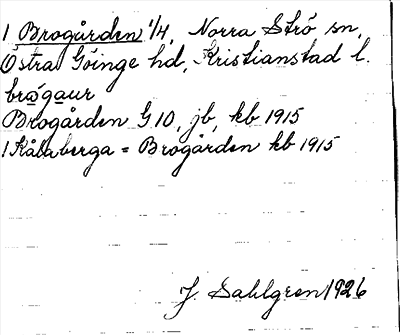 1 Brogården 1/4, Norra Strö sn,
Östra Göinge hd, Kristianstad l.
brǫgaur
Brogården G 10, jb, kb 1915
1 Kålaberga = Brogården kb 1915
J. Sahlgren 1926